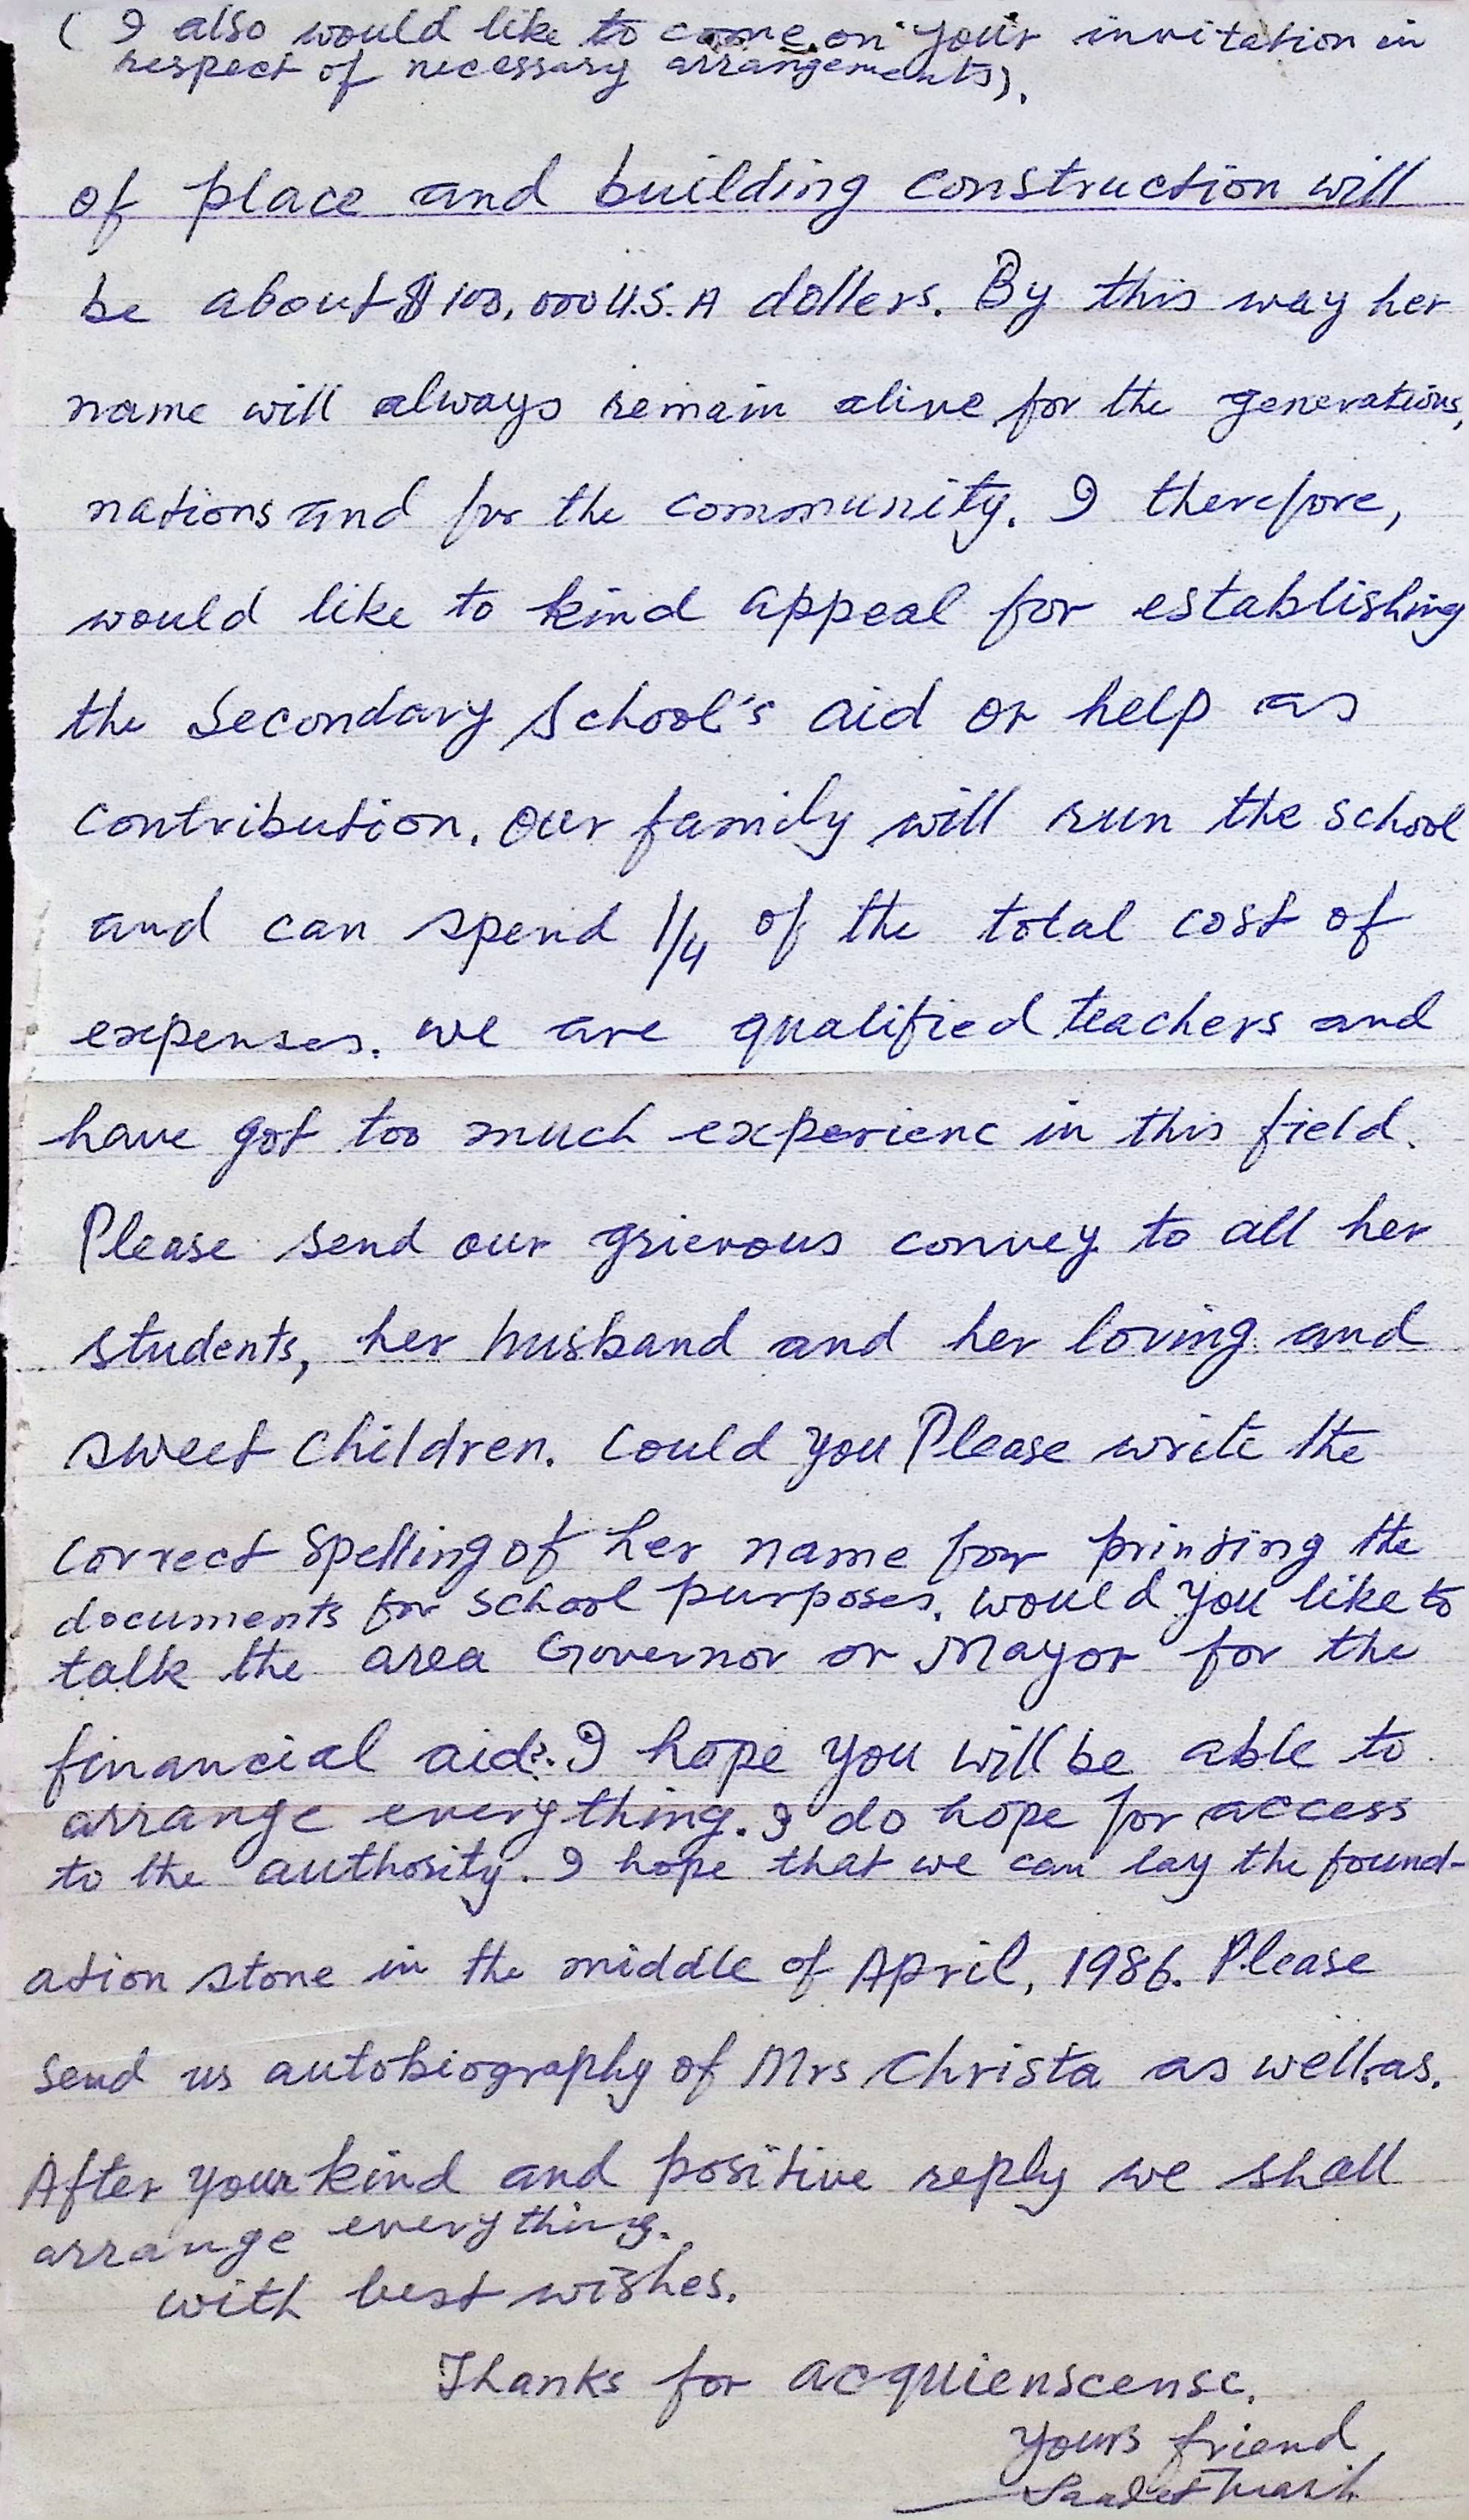 ( I also would like to come on your invitation in
respect of necessary arrangements).
of place and building construction will
be about $ 100,000 U.S.A dollers. By this way her
name will always remain alive for the generations,
nations and for the community. I therefore,
would like to kind appeal for establishing
the Secondary School's aid or help as
contribution. Our family will run the school
and can spend 1/4 of the total cost of
expenses. we are qualified teachers and
have got too much experienc in this field.
Please send our grievous convey to all her
students, her husband and her loving and
sweet children. Could you Please write the
correct Spelling of her name for printing the
documents for school purposes. would you like to
talk the area Governor or Mayor for the
financial aid?. I hope you will be able to
arrange everything. I do hope for access
to the authority. I hope that we can lay the found-
ation stone in the middle of April, 1986. Please
send us autobiography of Mrs Christa as well as.
After your kind and positive reply we shall
arrange everything.
with best wishes.
Thanks for acquienscense.
yours friend,